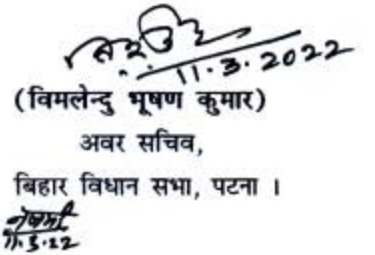 11.3.2022
(विमलेन्दु भूषण कुमार)
अवर सचिव,
बिहार विधान सभा, पटना ।
11.3.22